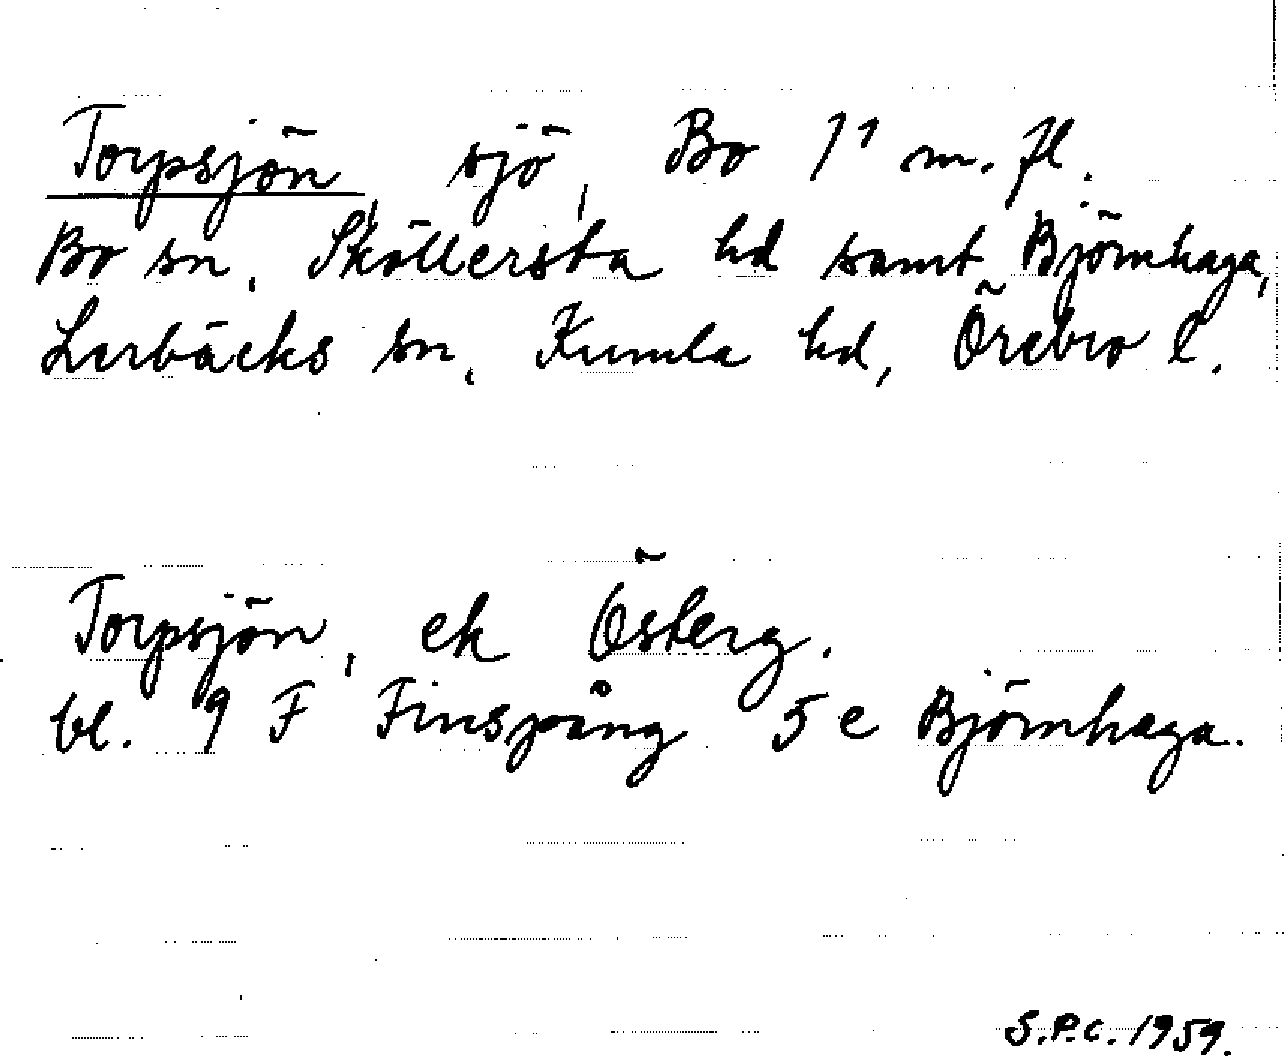 Torpsjön, sjö, Bo 1¹ m. fl.
Bo sn, Sköllersta hd samt Björnhaga,
Lerbäcks sn, Kumla hd, Örebro l.
Torpsjön, ek Österg.
bl. 9 F Finspång 5 e Björnhaga.
S.P.C. 1959.